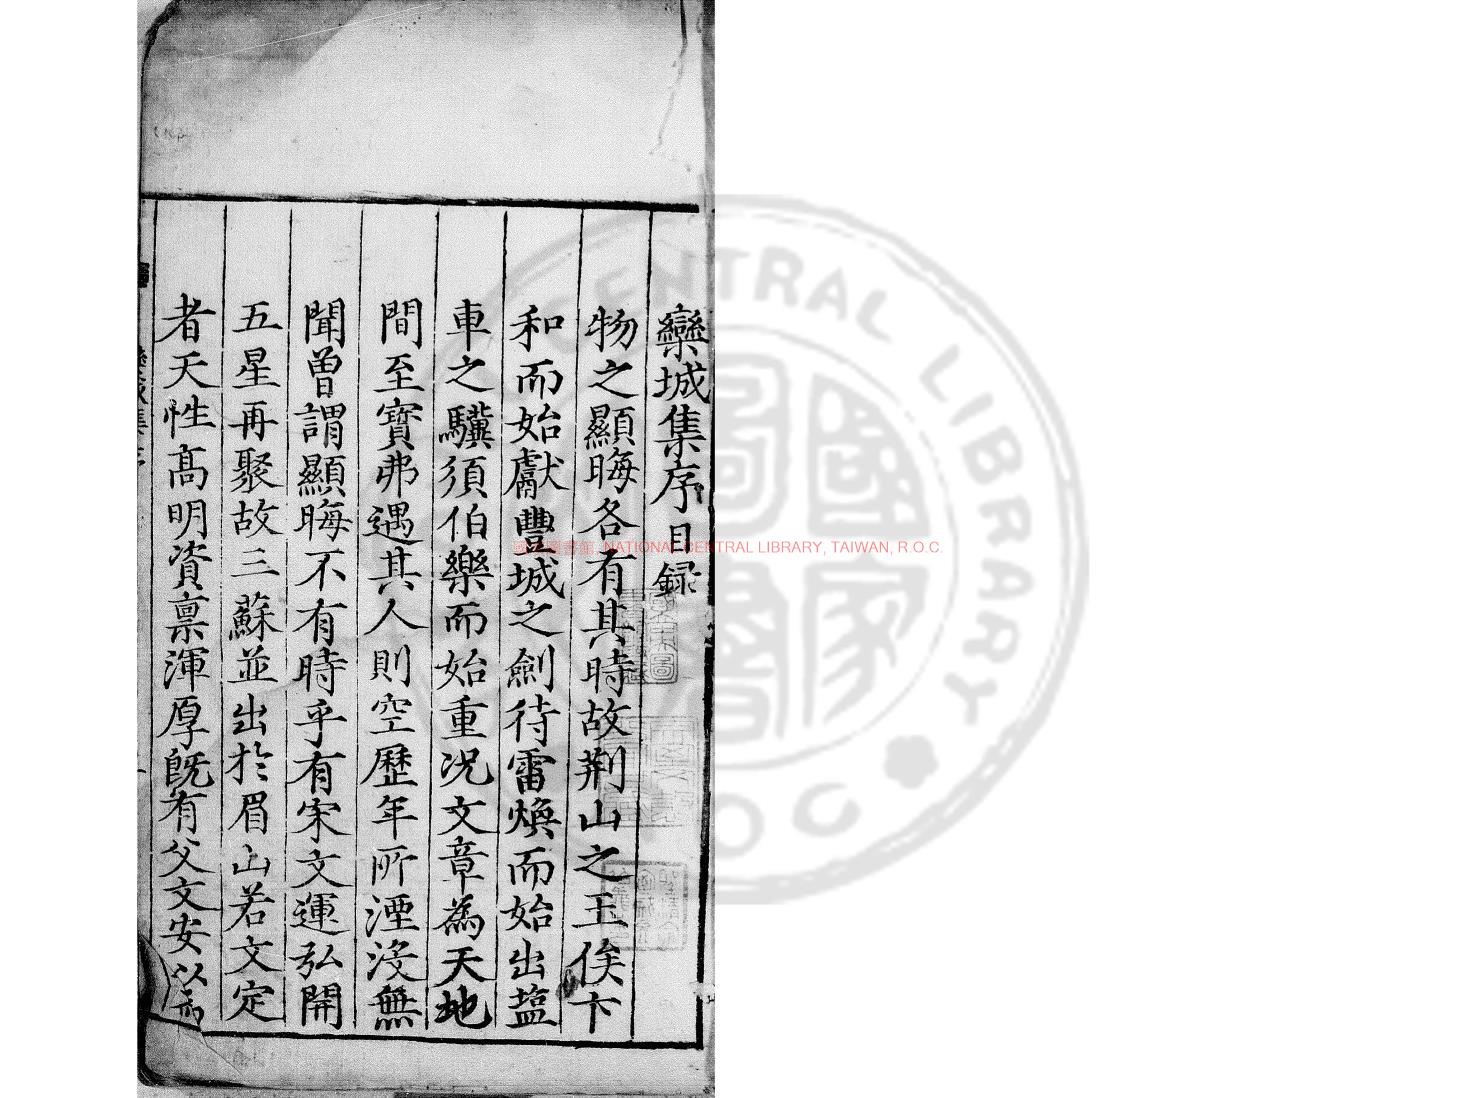 欒城集序目録
物之顯晦各有其時故荆山之玉俟卞
和而始獻豐城之劍待雷煥而始出塩
車之驥須伯樂而始重况文章為天地
間至寶弗遇其人則空歷年所湮沒無
聞曽謂顯晦不有時乎有宋文運弘開
五星再聚故三蘇並出於眉山若文定
者天性髙明資禀渾厚既有父文安以為
國家圖書館, NATIONAL CENTRAL LIBRARY, TAIWAN, R.O.C.
CENTRAL LIBRARY